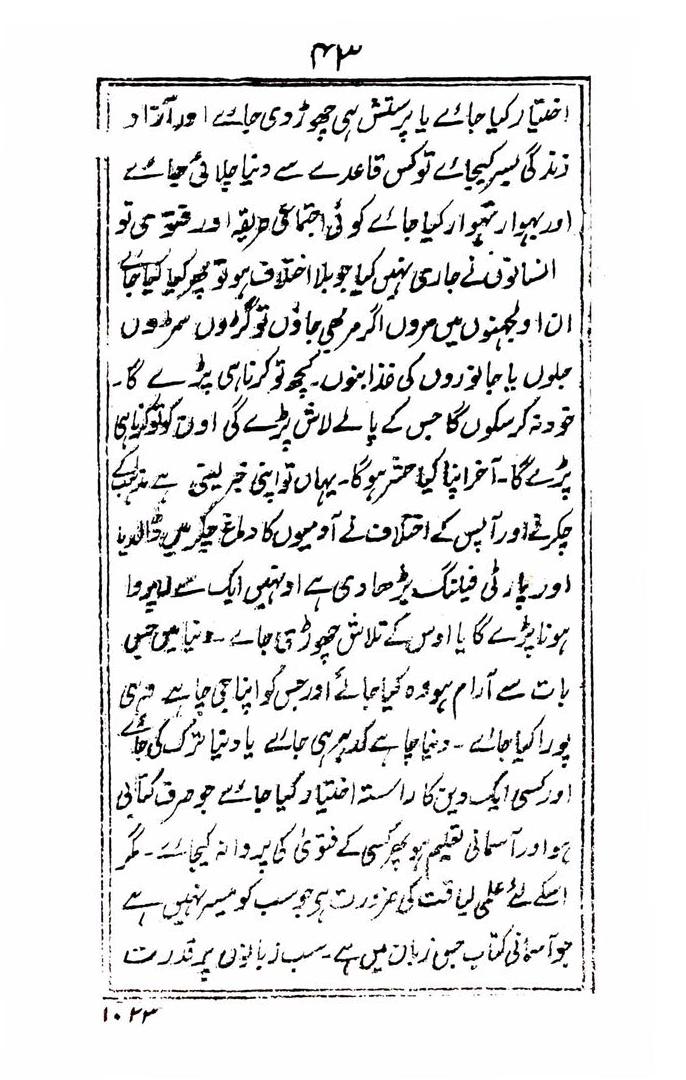 ۴۳
اختیار کیا جائے یا پرستش ہی چھوڑ دی جائے اور آزاد
زندگی بسر کیجائے تو کس قاعدے سے دنیا چلائی جائے
اور بہوار تہوار کیا جائے کوئی اجتماعی طریقہ اور فتویٰ تو
انسانوں نے جاری نہیں کیا جو بلا اختلاف ہو تو پھر کیا کیا جائے
ان اولجہنوں میں مروں اگر مر بھی جاؤں تو گڑوں سڑوں
جلوں یا جانوروں کی غذا بنوں۔ کچھ تو کرنا ہی پڑے گا۔
خود نہ کر سکوں گا جس کے پالے لاش پڑے گی اون کو تو کرنا ہی
پڑے گا۔ آخر اپنا کیا حشر ہوگا۔ یہاں تو اپنی خبر لیتی ہے مذہب کے
چکر نے اور آپس کے اختلاف نے آدمیوں کا دماغ چکر میں ڈالدیا
اور پارٹی فیلنگ بڑھا دی ہے اونہیں ایک سے لاپروا
ہونا پڑے گا یا اوس کے تلاش چھوڑی جائے۔ دنیا میں جس
بات سے آرام ہو وہ کیا جائے اور جس کو اپنا جی چاہے وہی
پورا کیا جائے۔ دنیا چاہے کدہر ہی جائے یا دنیا ترک کی جائے
اور کسی ایک دین کا راستہ اختیار کیا جائے جو صرف کتابی
ہو اور آسمانی تعلیم ہو پھر کسی کے فتویٰ کی پروا نہ کیجائے۔ مگر
اسکے لئے علمی لیاقت کی ضرورت ہے جو سب کو میسر نہیں ہے
جو آسمانی کتاب جس زبان میں ہے۔ سب زبانوں پر قدرت
۱۰۲۳